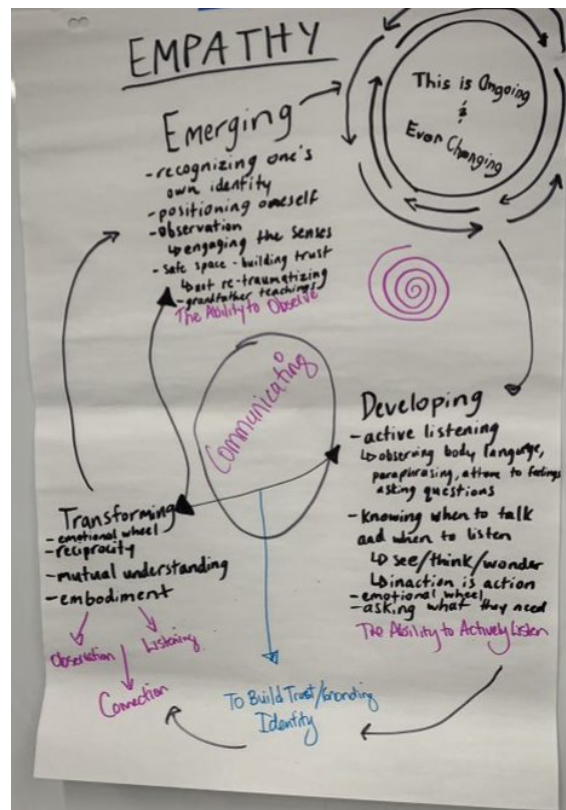 EMPATHY
This is Ongoing
&
Ever Changing
Emerging
- recognizing one's
own identity
- positioning oneself
- observation
↳ engaging the senses
- safe space - building trust
↳ not re-traumatizing
- grandfather teachings
The Ability to Observe
Communicating
Developing
- active listening
↳ observing body language,
paraphrasing, attune to feelings
asking questions
- knowing when to talk
and when to listen
↳ see/think/wonder
↳ inaction is action
- emotional wheel
- asking what they need
The Ability to Actively Listen
Transforming
- emotional wheel
- reciprocity
- mutual understanding
- embodiment
Observation
Listening
Connection
To Build Trust/
Identity